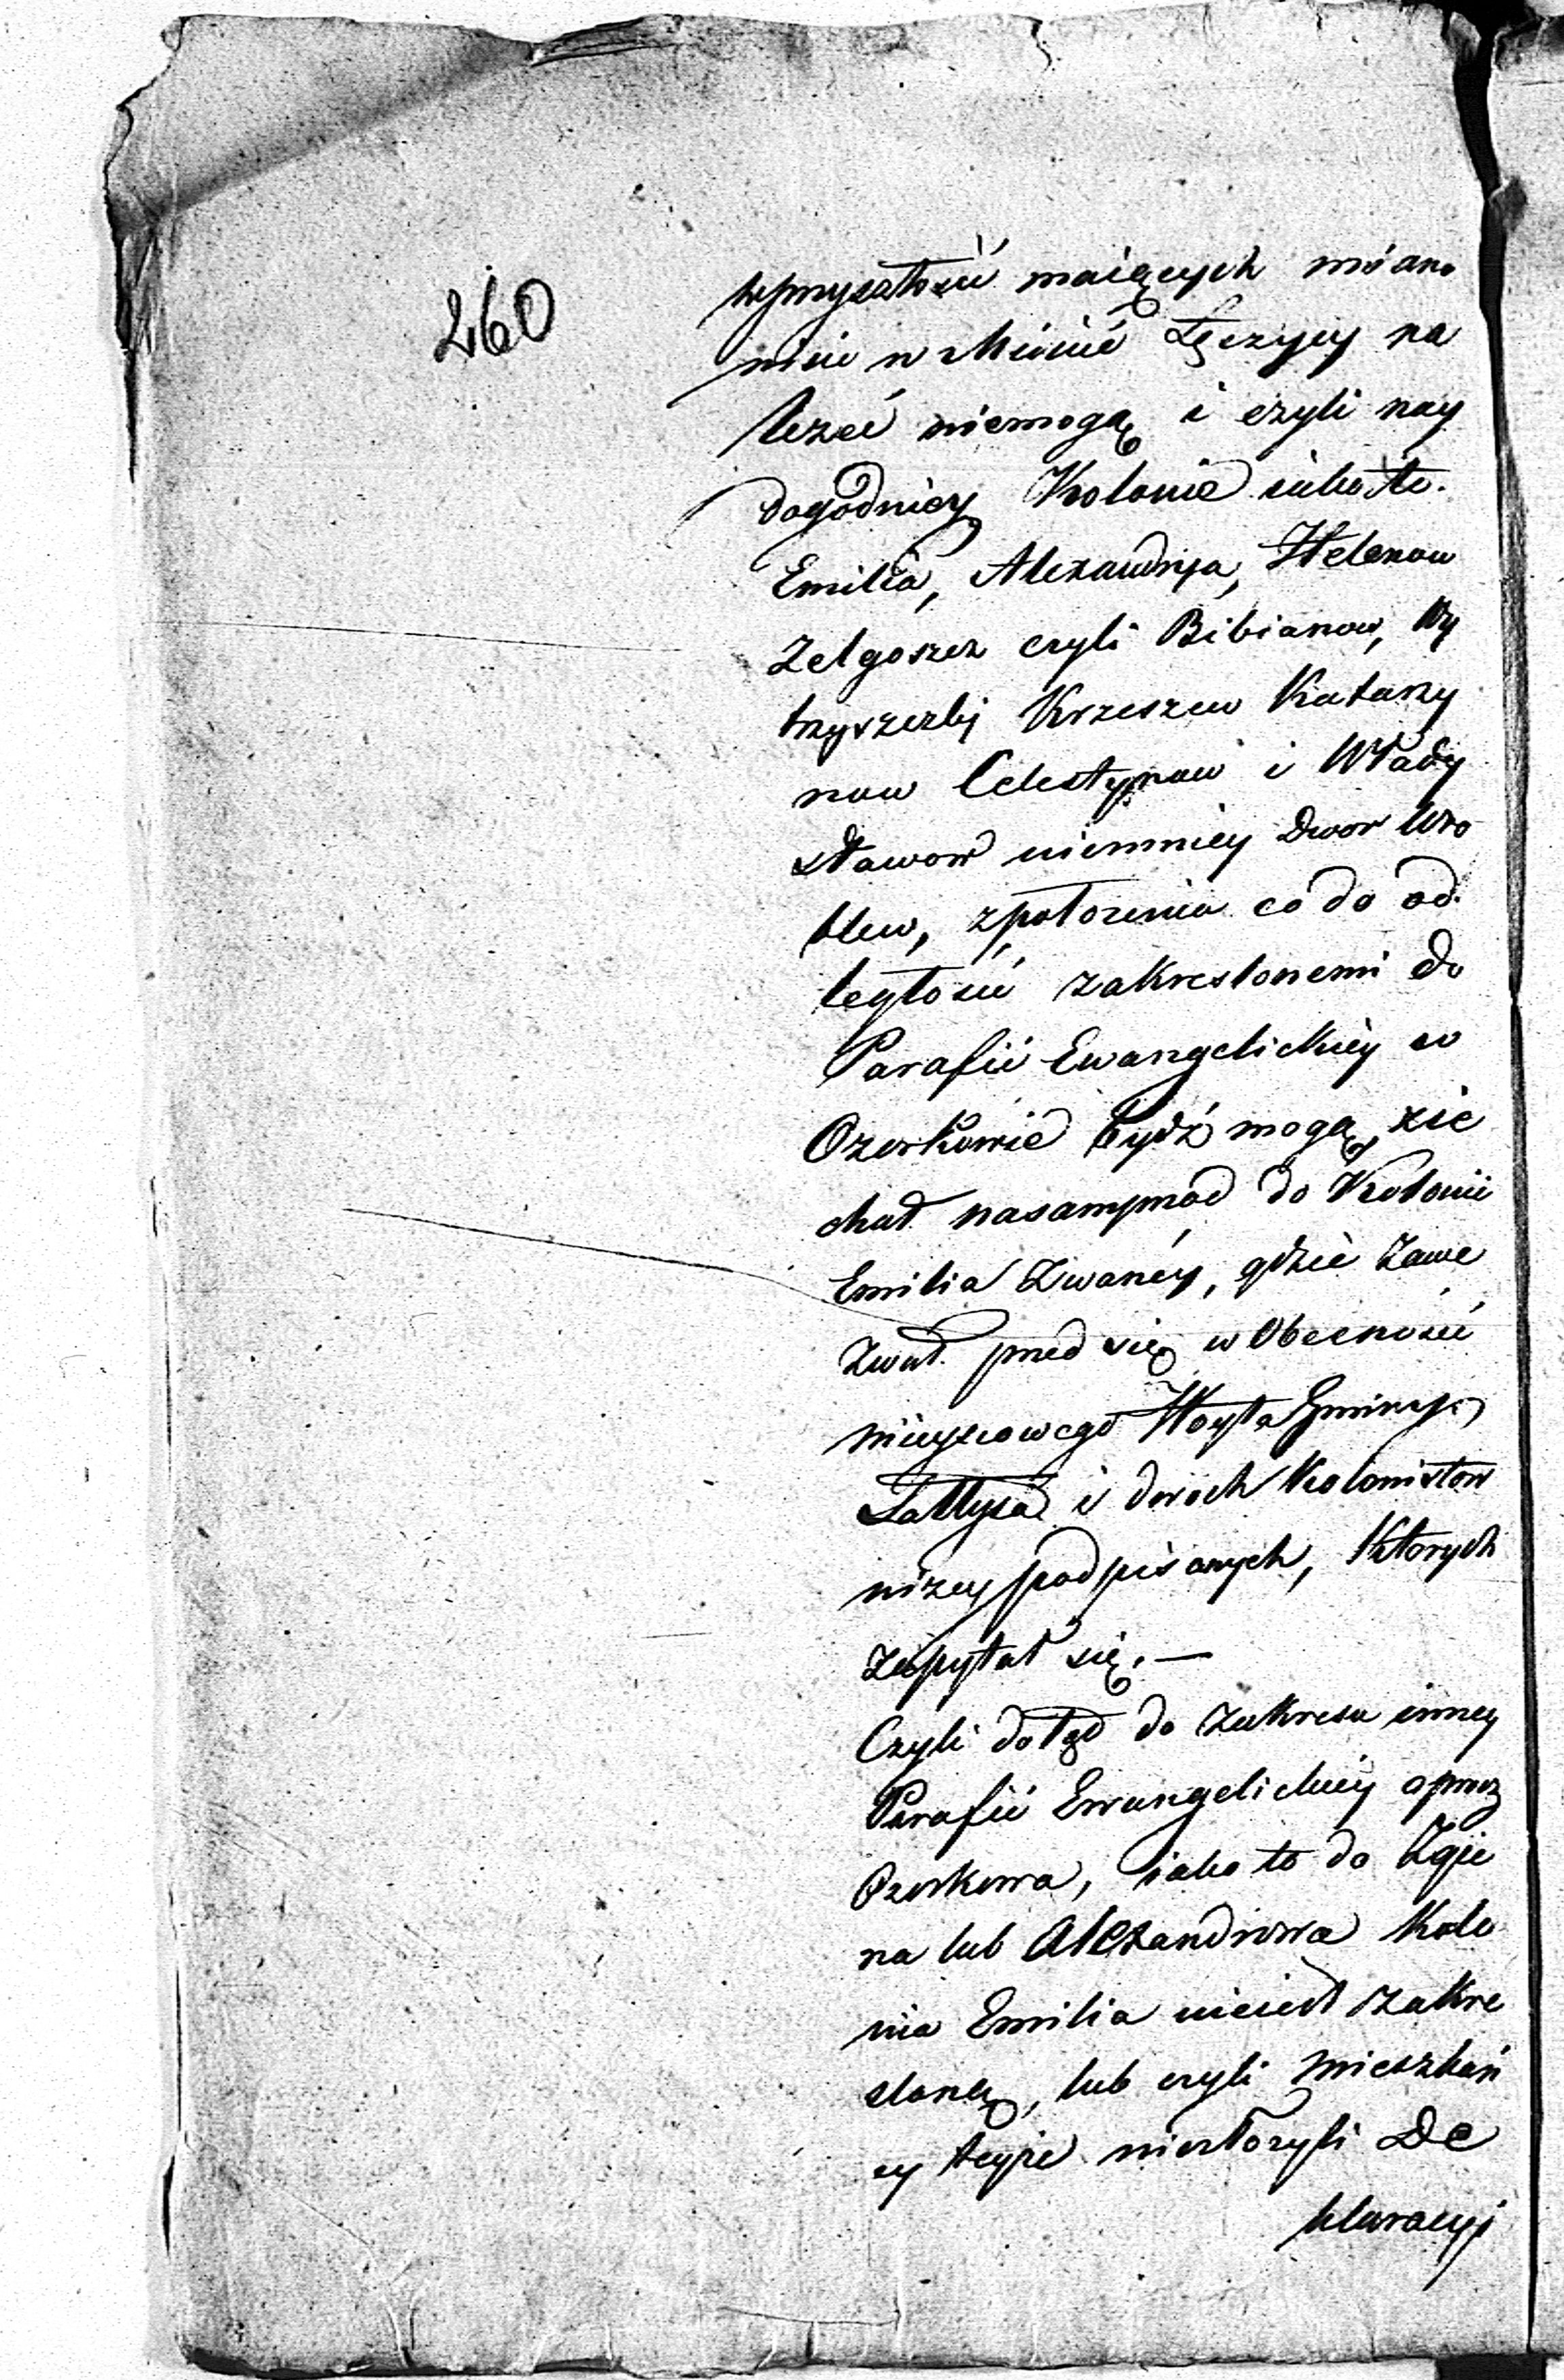 260
wprzyszłości maiących miano
wicie w Mieście Łęczycy na
leżeć niemogą i czyli nay
dogodniey Kolonie iako to.
Emilia, Alexandrya, Helenow
Zelgoszcz czyli Bibianow, Wy
trzyszczki Krzeszew Katarzy
now Celestynow i Włady
sławow niemniey Dwor Wro
blew, z położenia co do od
ległości zakreslonemi do
Parafii Ewangelickiey w
Ozorkowie bydź mogą, zie
chał nasamprzod do Kolonii
Emilia Zwaney, gdzie zawe
zwał przed się w Obecności
mieyscowego Woyta Gminy
Sołtysa i dwoch Kolonistow
niżey podpisanych, Ktorych
zapytał się. —
Czyli dotąd do zakresu inney
Parafii Ewangelickiey oprocz
Ozorkowa, iako to do Zgie
rza lub Alexandrowa Kolo
nia Emilia nieiest zakre
sloną, lub czyli Mieszkań
cy teyże niezłożyli De
klaracyi